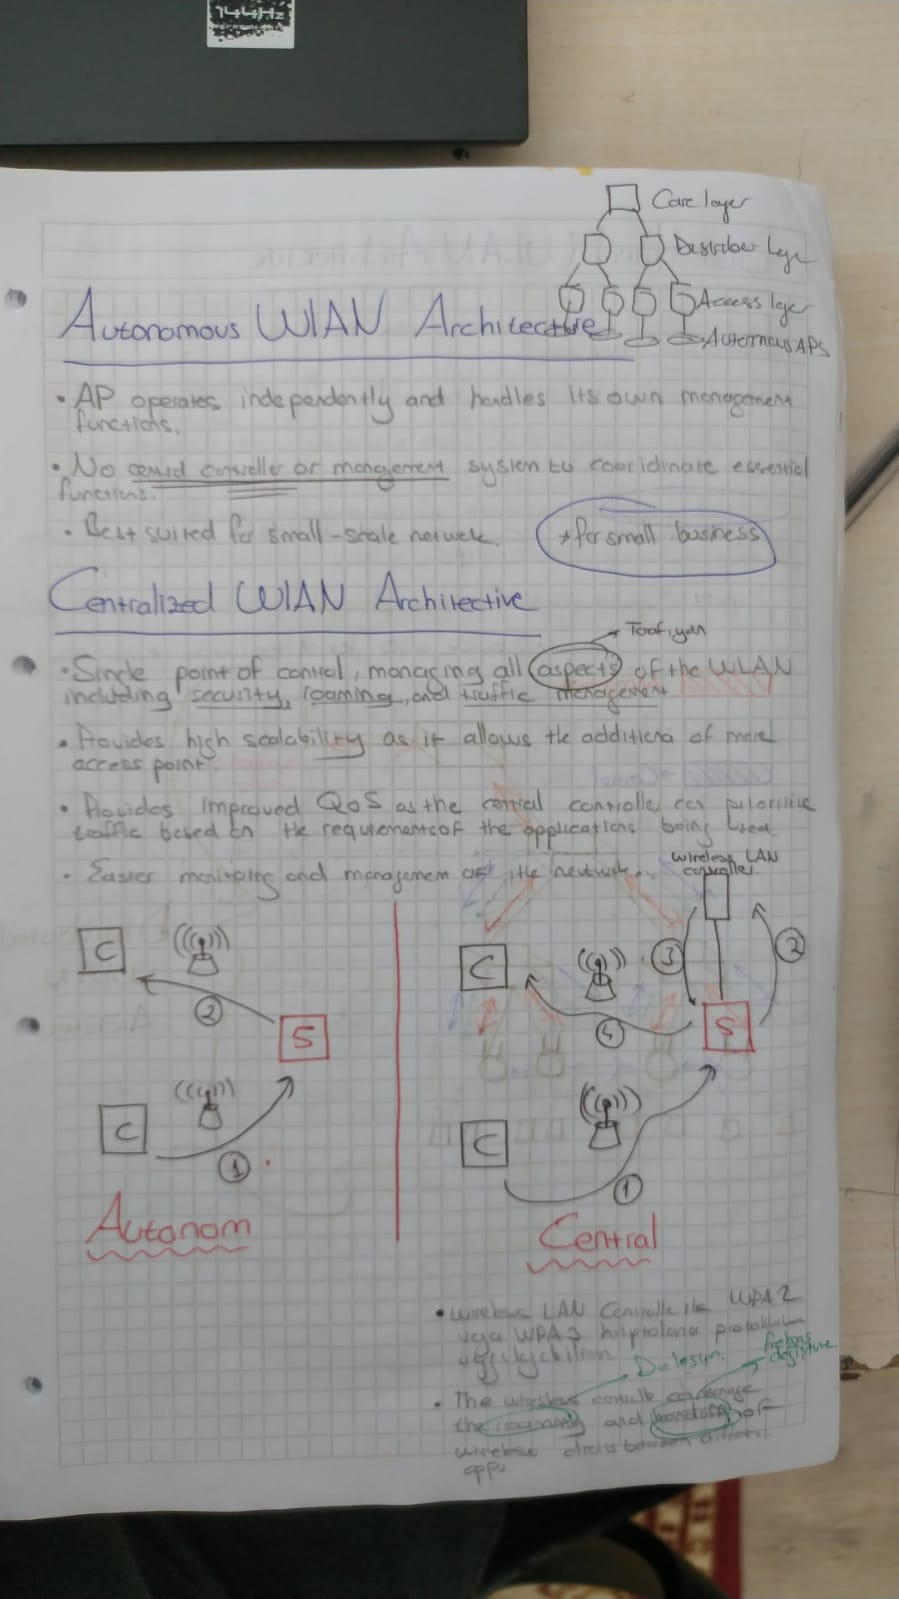 144Hz
Core layer
Distribue Layer
Access layer
Autonomus APs
Autonomous WLAN Architective
• AP operates independently and handles its own management
functions.
• No central controller or mangement system to cooridinate essential
functions.
• Best suited for small-scale network.
*for small business
Centralized WLAN Architective
→ Taraf, yön
• Single point of control, managing all aspects of the WLAN
including security, roaming, and traffic management
• Provides high scalability as it allows the additiona of more
access point.
• Provides Improved QoS as the central controller can prioritize
traffic based on the requirements of the applications being used
• Easier monitoring and management of the network.
Wireless LAN
controller
C
2
S
C
1
Autonom
C
3
2
4
S
C
1
Central
• Wireless LAN Controller ile WPA2
veya WPA3 protokollerini
Dolasım.
frekans
degistirme
• The wireless controlle can manage
the roaming and handoff of
wireless clients between different
apps